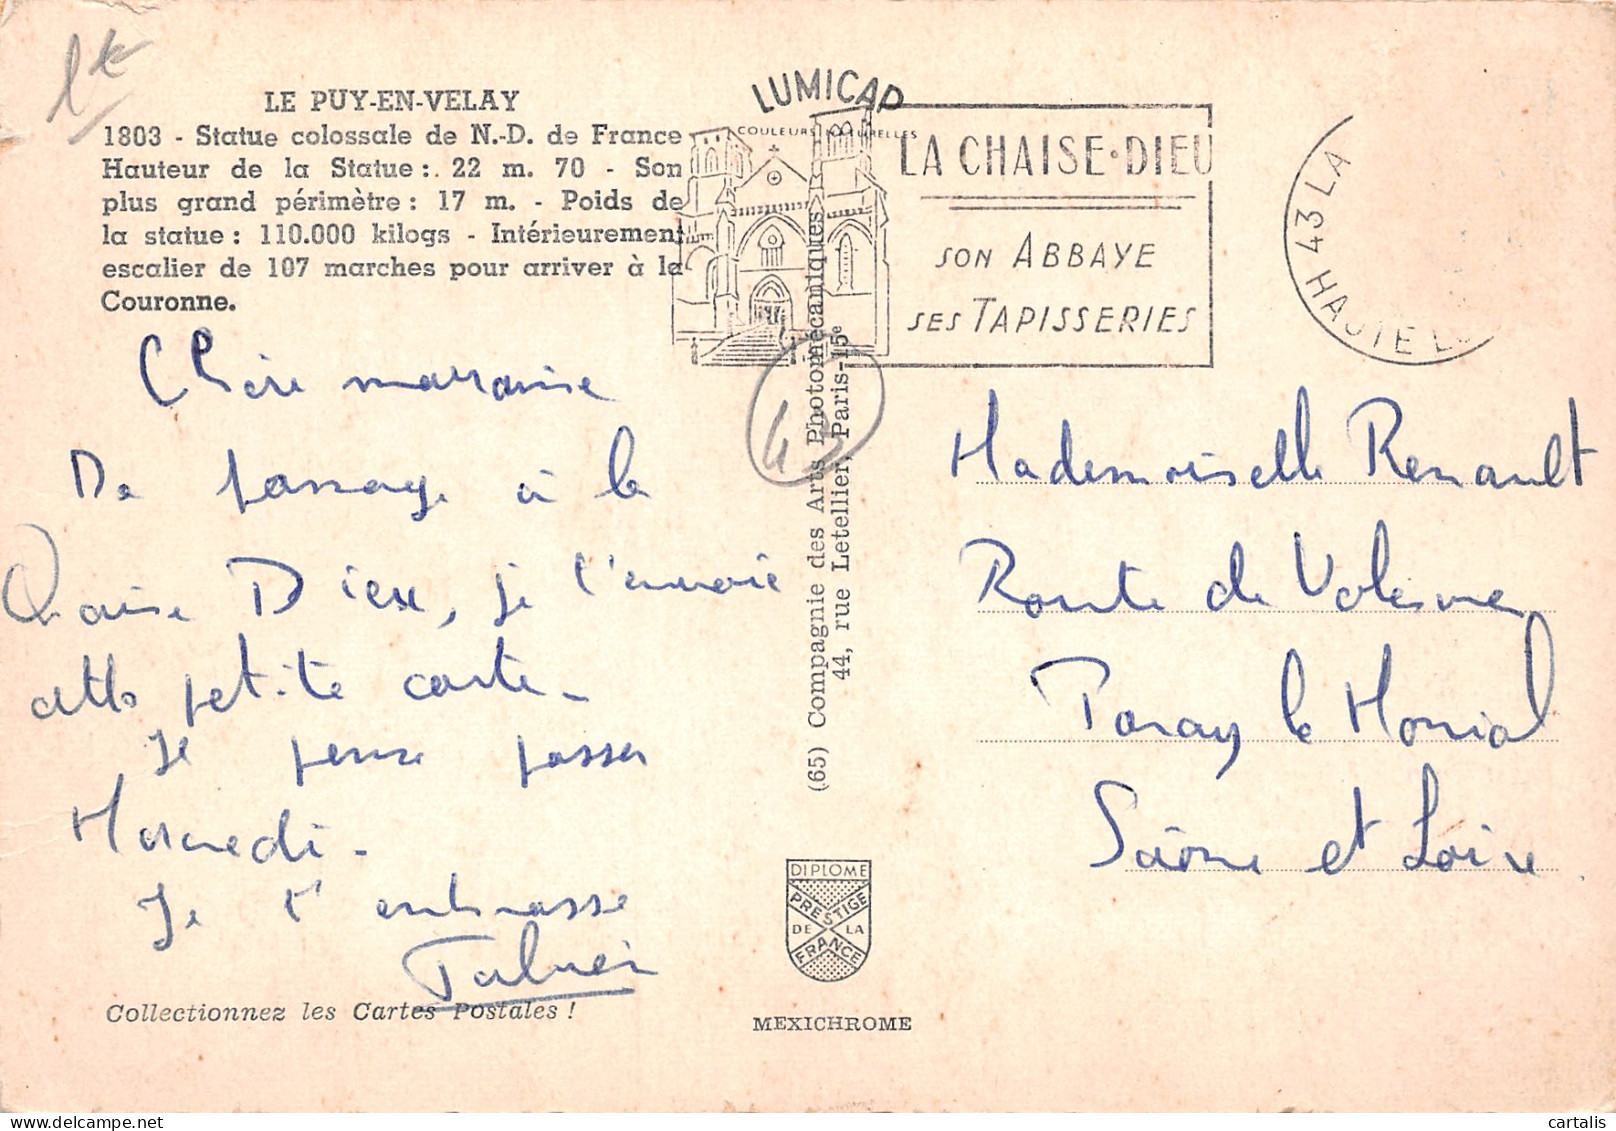 1€
LE PUY-EN-VELAY
1803 - Statue colossale de N.-D. de France
Hauteur de la Statue : 22 m. 70 - Son
plus grand périmètre : 17 m. - Poids de
la statue : 110.000 kilogs - Intérieurement
escalier de 107 marches pour arriver à la
Couronne.
LUMICAP
COULEURS NATURELLES
LA CHAISE-DIEU
SON ABBAYE
SES TAPISSERIES
43 LA
HAUTE L
43
Chère marraine
De passage à la
Chaise Dieu, je t'envoie
cette petite carte_
Je pense passer
Mercredi_
Je t'embrasse
Collectionnez les Cartes Postales !
(65) Compagnie des Arts Photomécaniques
44, rue Letellier, Paris-15e
DIPLOME
PRESTIGE
DE LA
FRANCE
MEXICHROME
Mademoiselle Renault
Route de
Paray le Monial
Saône et Loire
cartalis